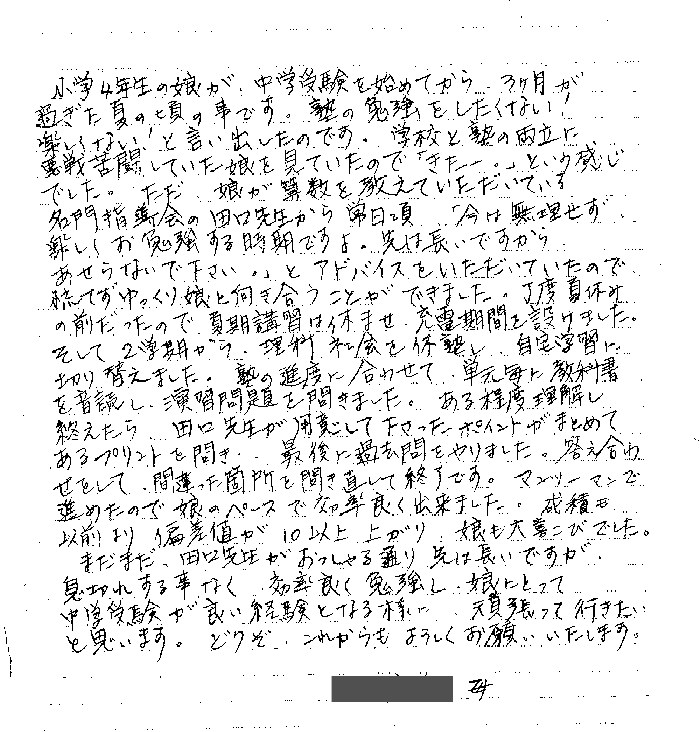 小学4年生の娘が、中学受験を始めてから、3ヶ月が
過ぎた夏の頃の事です。塾の勉強をしたくない!
楽しくない!と言い出したのです。学校と塾の両立に
悪戦苦闘していた娘を見ていたので「きたー。」という感じ
でした。ただ、娘が算数を教えていただいている
名門指導会の田口先生から常日頃、「今は無理せず、
楽しくお勉強する時期ですよ。先は長いですから
あせらないで下さい。」とアドバイスをいただいていたので
慌てずゆっくり娘と向き合うことができました。丁度夏休み
の前だったので、夏期講習は休ませ、充電期間を設けました。
そして2学期から、理科、社会を休塾し、自宅学習に
切り替えました。塾の進度に合わせて、単元毎に教科書
を音読し、演習問題を解きました。ある程度理解し
終えたら、田口先生が用意して下さったポイントがまとめて
あるプリントを解き、最後に過去問をやりました。答え合わ
せをして、間違った箇所を解き直して終了です。マンツーマンで
進めたので娘のペースで効率良く出来ました。成績も
以前より偏差値が10以上上がり、娘も大喜こびでした。
まだまだ、田口先生がおっしゃる通り先は長いですが、
息切れする事なく、効率良く勉強し、娘にとって
中学受験が良い経験となる様に、頑張って行きたい
と思います。どうぞ、これからもよろしくお願いいたします。